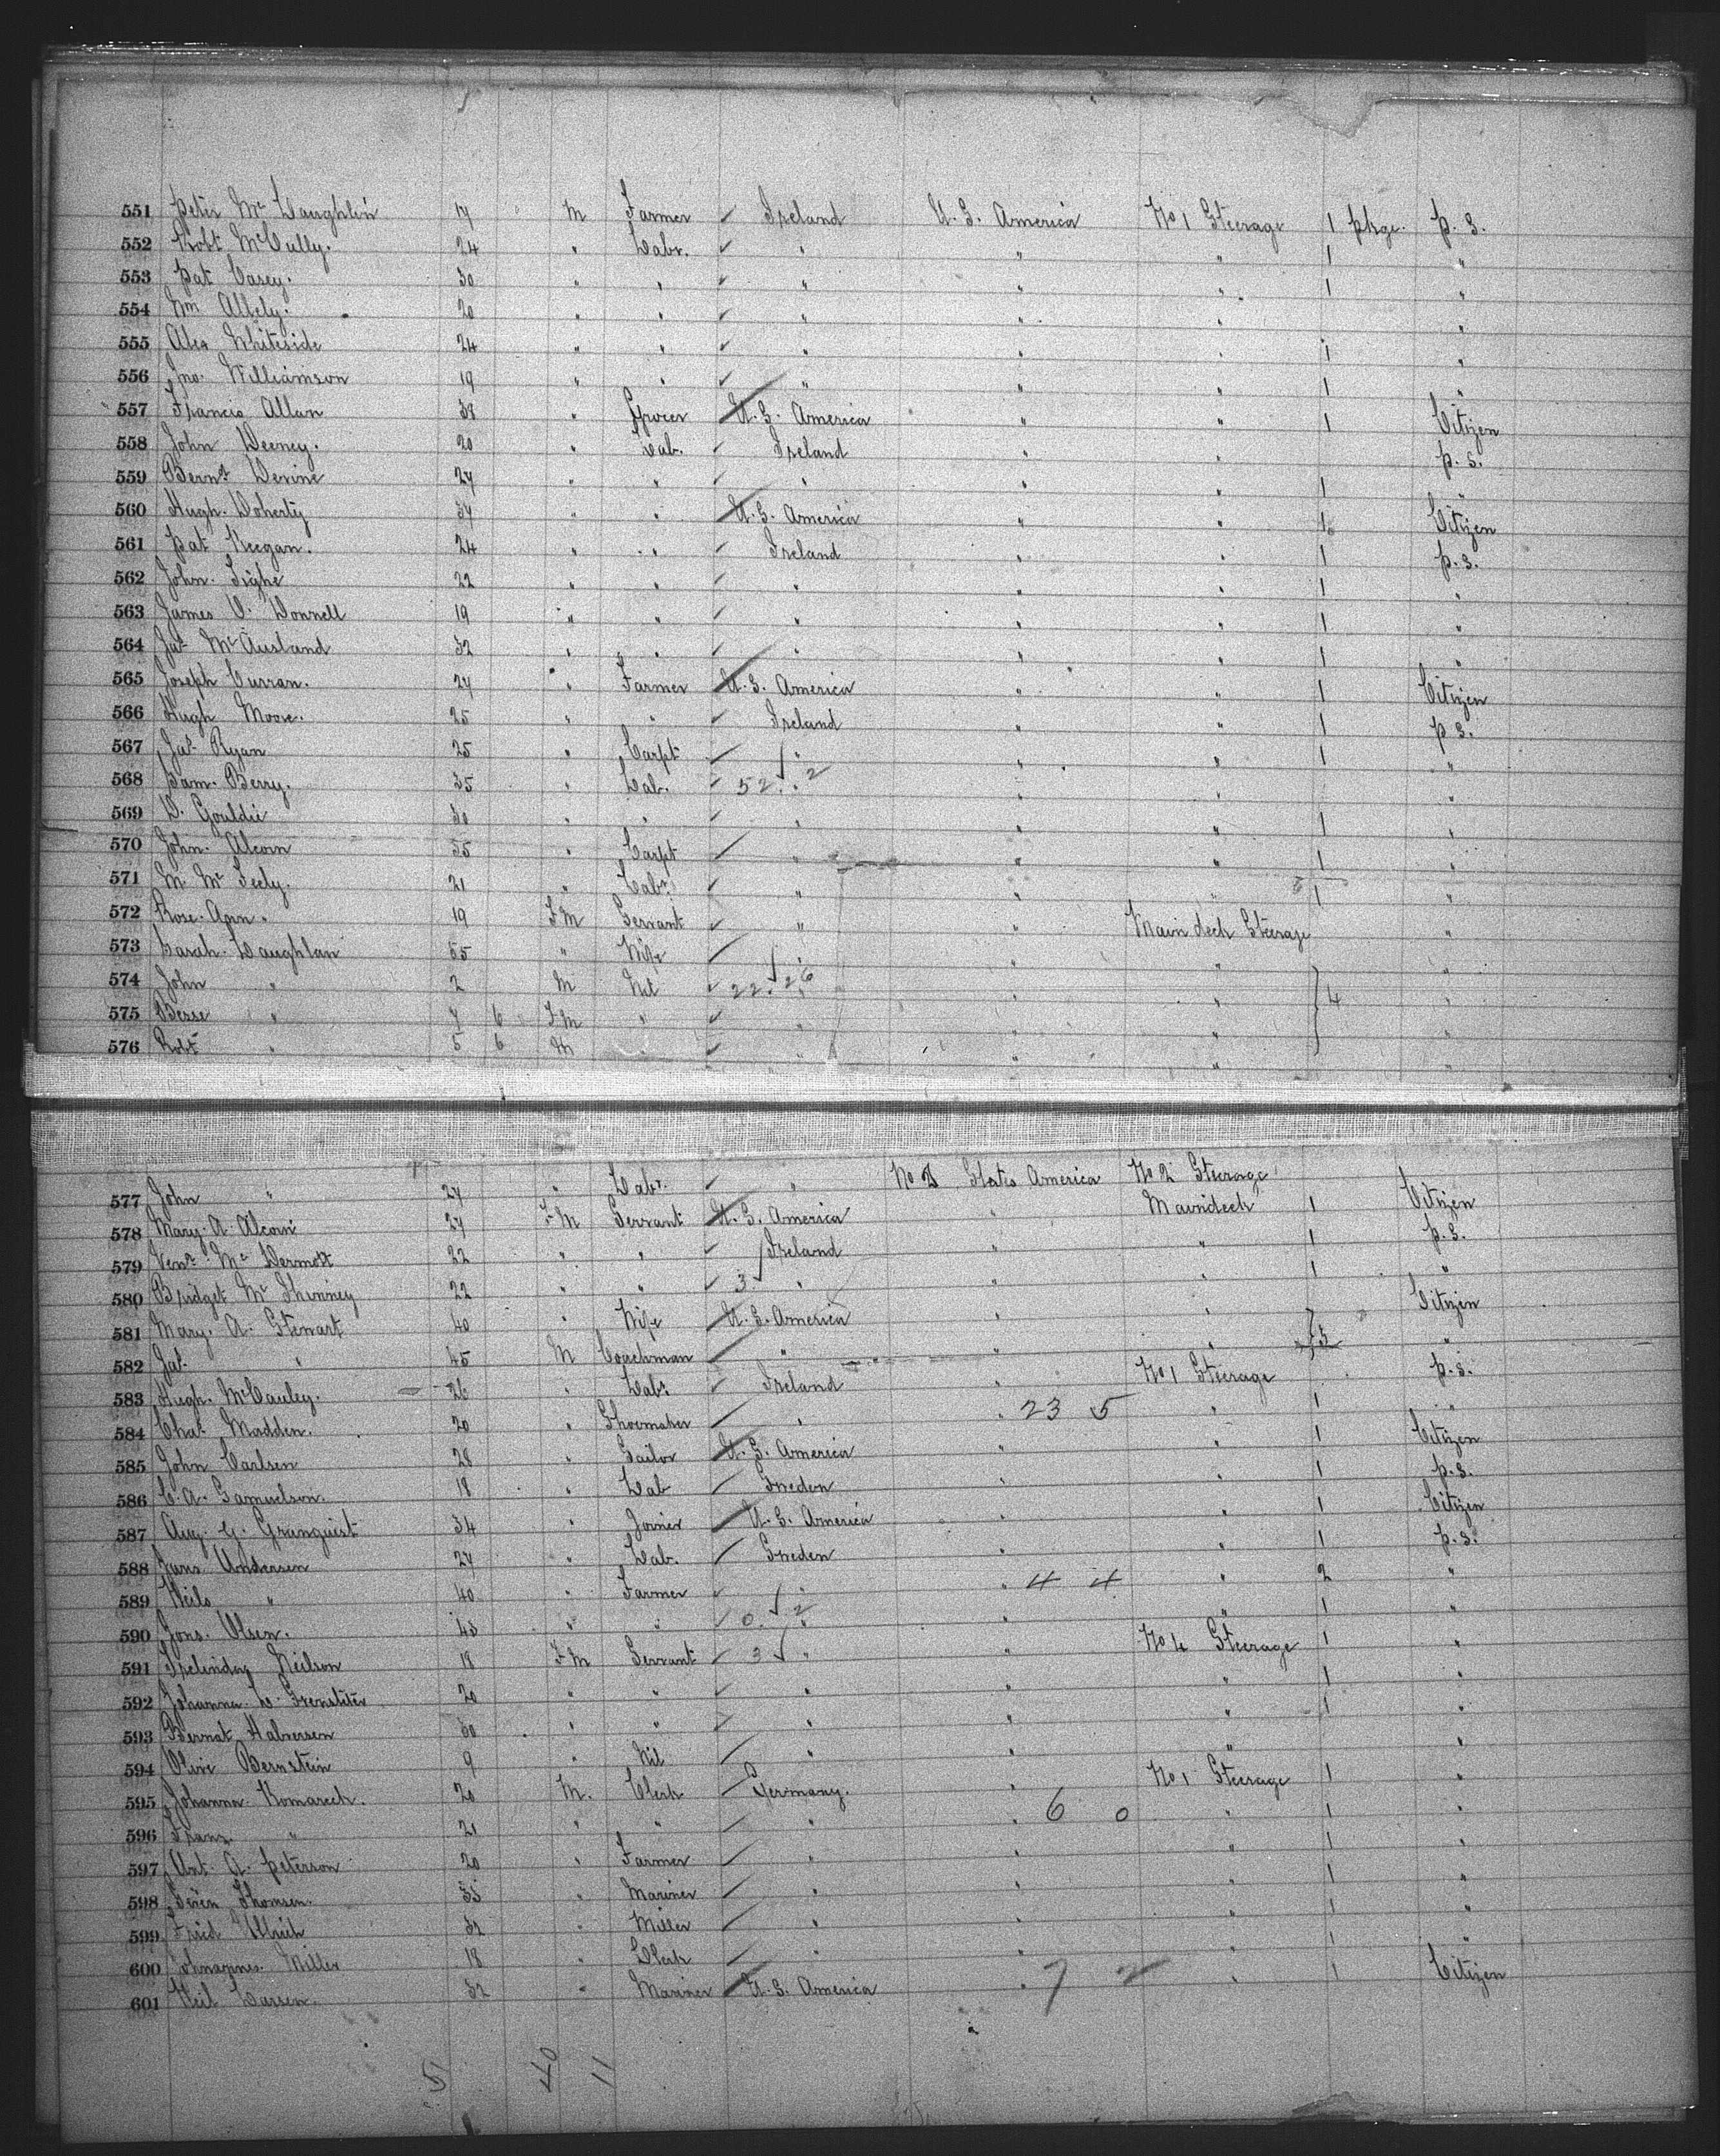 551 Peter McLaughlin 17 " M Farmer ✓ Ireland U.S. America No 1 Steerage 1 pkge. p.s.
552 Robt McCully. 24 " Labr. ✓ " " " 1 "
553 Pat Casey. 30 " " ✓ " " " 1 "
554 Wm 20 " " ✓ " " " "
555 Alex Whiteside 24 " " ✓ " " " 1 "
556 Jno. Williamson 19 " " ✓ " " " 1 "
557 Francis Allan 38 " Grocer U.S. America " " 1 Citizen
558 John Weeney. 20 " Lab. ✓ Ireland " " p.s.
559 Bernd Devine 27 " " ✓ " " " 1 "
560 Hugh. Doherty 37 " " U.S. America " " 1 Citizen
561 Pat Keegan. 24 " " ✓ Ireland " " 1 p.s.
562 John. Tighe 22 " " ✓ " " " 1 "
563 James O. Donnell 19 " " ✓ " " " 1 "
564 Jas McAusland 32 " " ✓ " " " 1 "
565 Joseph Curran. 27 " Farmer U.S. America " " 1 Citizen
566 Hugh Moore. 25 " " ✓ Ireland " " 1 p.s.
567 Jas Ryan 25 " Carpt ✓ " " " 1 "
568 Sam. Berry. 35 " Lab. ✓ 52 √ 2 " " "
569 D. Gouldie 30 " " " " " 1 "
570 John. Alcorn 55 " Carpt ✓ " " " 1 "
571 M. Mc Feely. 21 " Labr ✓ " " " 1 "
572 Rose. Ann. 19 FM Servant ✓ " " Main deck Steerage "
573 Sarah. Laughlan 55 " Wife ✓ " " " "
574 John " 2 M Nil ✓ 22 √ 26 " " } 4 "
575 Besse " 7 6 FM " ✓ " " " "
576 Robt " 5 6 M ✓ " " " "
577 John " 27 " Labr. ✓ " States America No 2 Steerage
578 Mary. A. Alcorn 27 FM Servant U.S. America " Maindeck 1 Citizen
579 McDermott 22 " " ✓ Ireland " " 1 p.s.
580 Bridget Mc 22 " " ✓ 3 √ " " " 1 "
581 Mary. A. Stewart 40 " Wife U.S. America " " } 3 Citizen
582 Jas. " 45 M Coachman " " " "
583 Hugh. McCauley. 26 " Labr ✓ Ireland " No 1 Steerage p.s.
584 Chas Madden. 20 " Shoemaker ✓ " " 23 5 " 1 "
585 John Carlsen 28 " Tailor U.S. America " " 1 Citizen
586 C. A. Samuelson. 18 " Lab ✓ Sweden " " 1 p.s.
587 Aug. G. Granquist 34 " Joiner U.S. America " " 1 Citizen
588 Jans Andersen 27 " Lab. ✓ Sweden " " 1 p.s.
589 Neils " 40 " Farmer ✓ " " 4 4 " 2 "
590 Jons. Olsen. 43 " " ✓ 0 √ 2 " " 1 "
591 Neilson 18 FM Servant ✓ 3 √ " " No 4 Steerage 1 "
592 Johanna. L. 20 " " ✓ " " " 1 "
593 Bernat Halversen 30 " " ✓ " " " 1 "
594 Olive Bernstein 9 " Nil ✓ " " " "
595 Johanna. Komarech. 20 M. Clerk ✓ Germany. " No 1 Steerage 1 "
596 Franz. " 21 " " ✓ " " 6 0 " 1 "
597 Ant. A. Peterson 20 " Farmer ✓ " " " 1 "
598 Thomsen. 35 " Mariner ✓ " " " 1 "
599 Fried Ullrich 32 " Miller ✓ " " " 1 "
600 Miller 18 " Clerk ✓ " " " 1 "
601 Neil Larsen. 32 " Mariner U.S. America " 7 2 " 1 Citizen
5 40 11